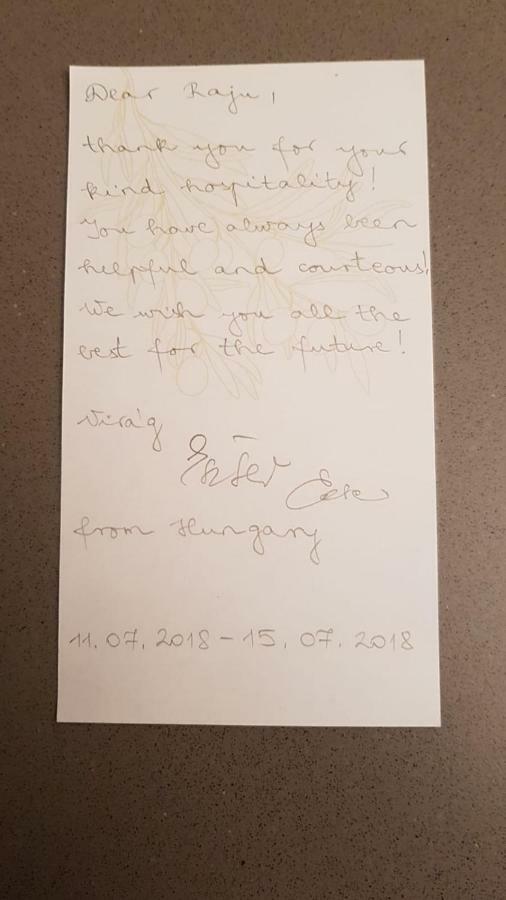 Dear Raju,
thank you for your
kind hospitality!
You have always been
helpful and courteous!
We wish you all the
best for the future!
Virág
Eszter
from Hungary
11.07.2018 - 15.07.2018